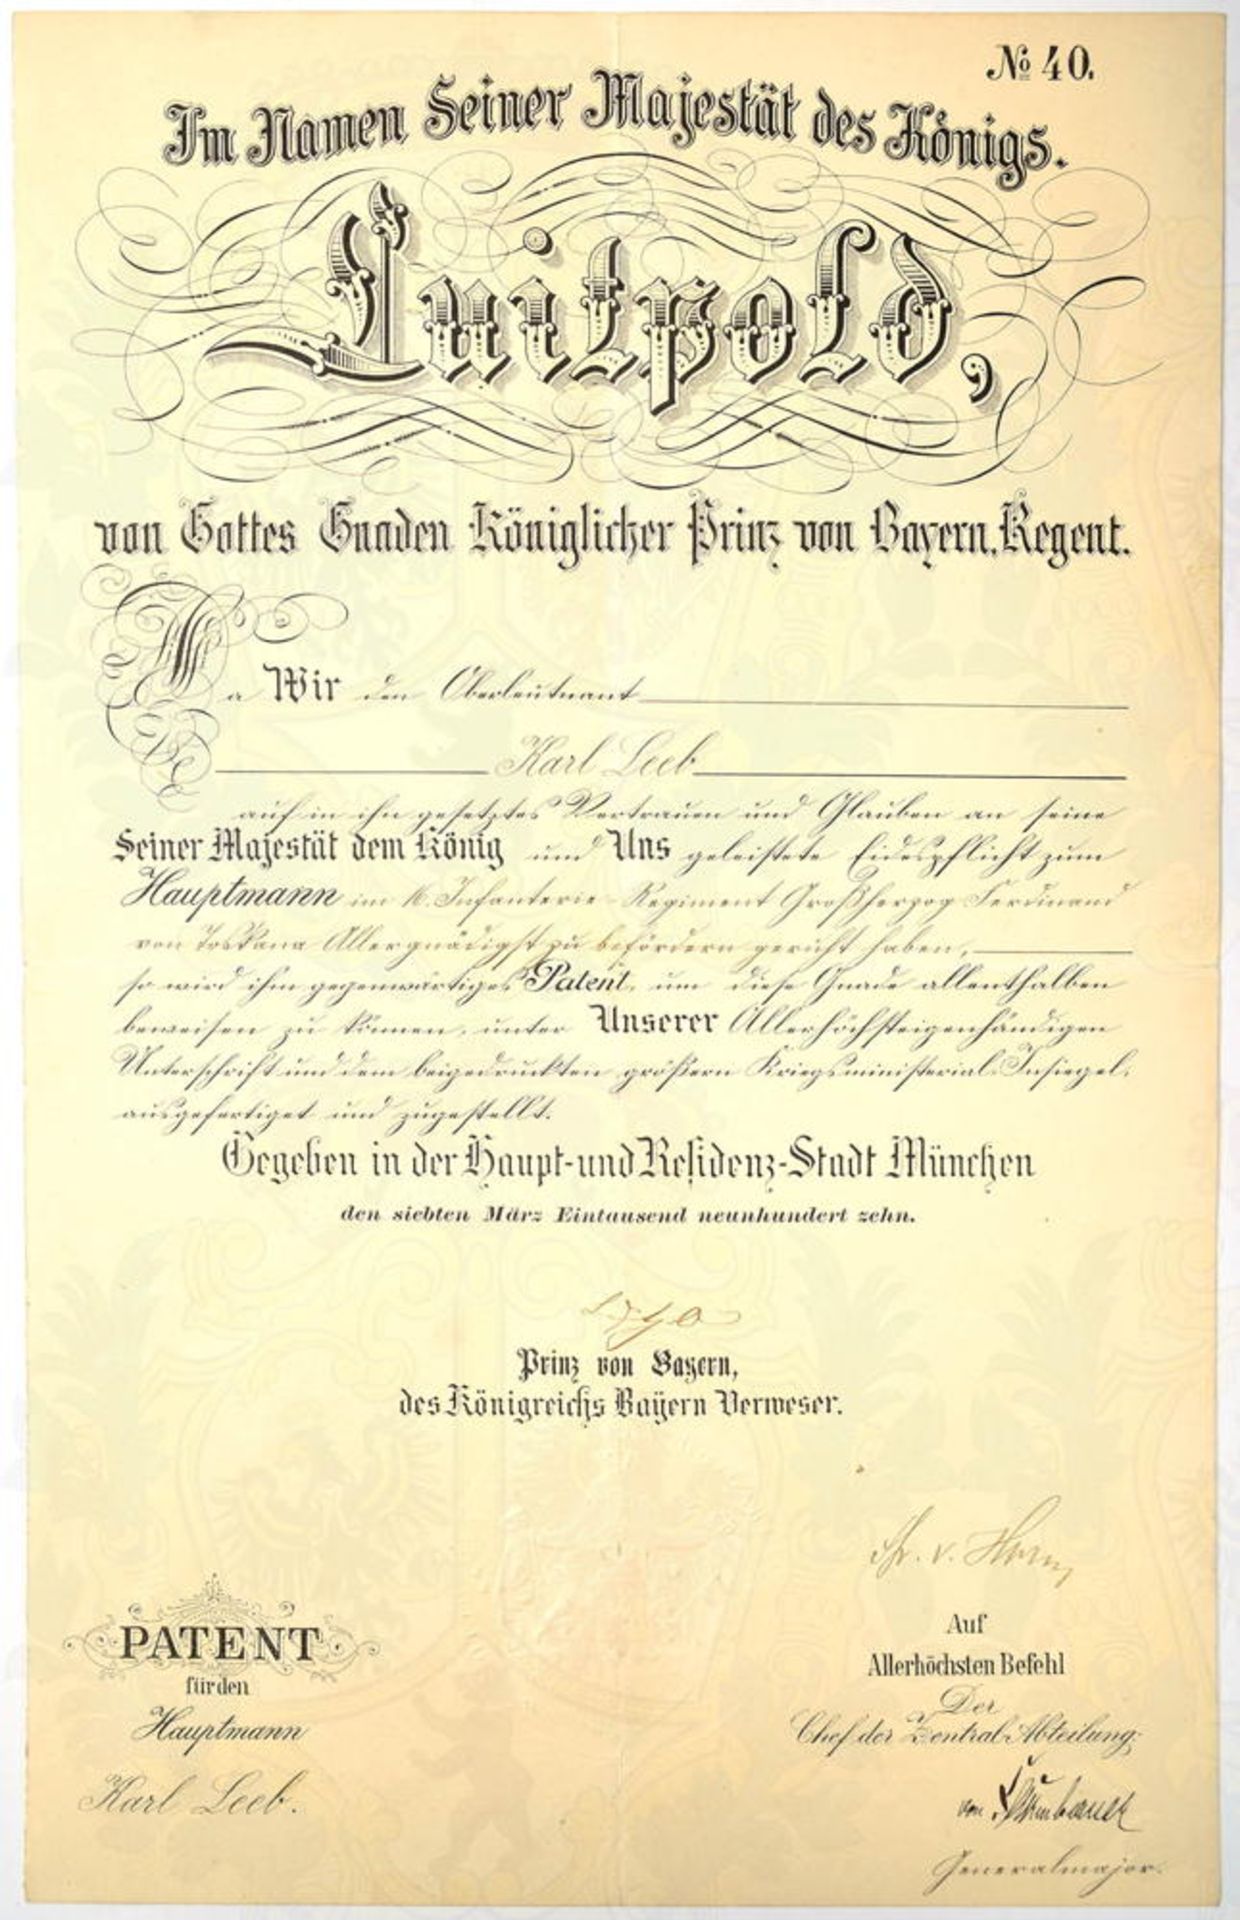 № 40.
Im Namen Seiner Majestät des Königs.
Luitpold,
von Gottes Gnaden Königlicher Prinz von Bayern, Regent.
Da Wir den Oberleutnant
Karl Leeb
auf in ihn gesetztes Vertrauen und Glauben an seine
Seiner Majestät dem König und Uns geleistete Eidespflicht zum
Hauptmann im 16. Infanterie-Regiment Großherzog Ferdinand
von Toskana Allergnädigst zu befördern geruht haben,
so wird ihm gegenwärtiges Patent, um diese Gnade allenthalben
beweisen zu können, unter Unserer Allerhöchsteigenhändigen
Unterschrift und dem beigedruckten größern Kriegsministerial-Insiegel
ausgefertiget und zugestellt.
Gegeben in der Haupt- und Residenz-Stadt München
den siebten März Eintausend neunhundert zehn.
Prinz von Bayern,
des Königreichs Bayern Verweser.
v. Horn
PATENT
für den
Hauptmann
Karl Leeb.
Auf
Allerhöchsten Befehl
Der
Chef der Zentral-Abteilung:
von
Generalmajor.